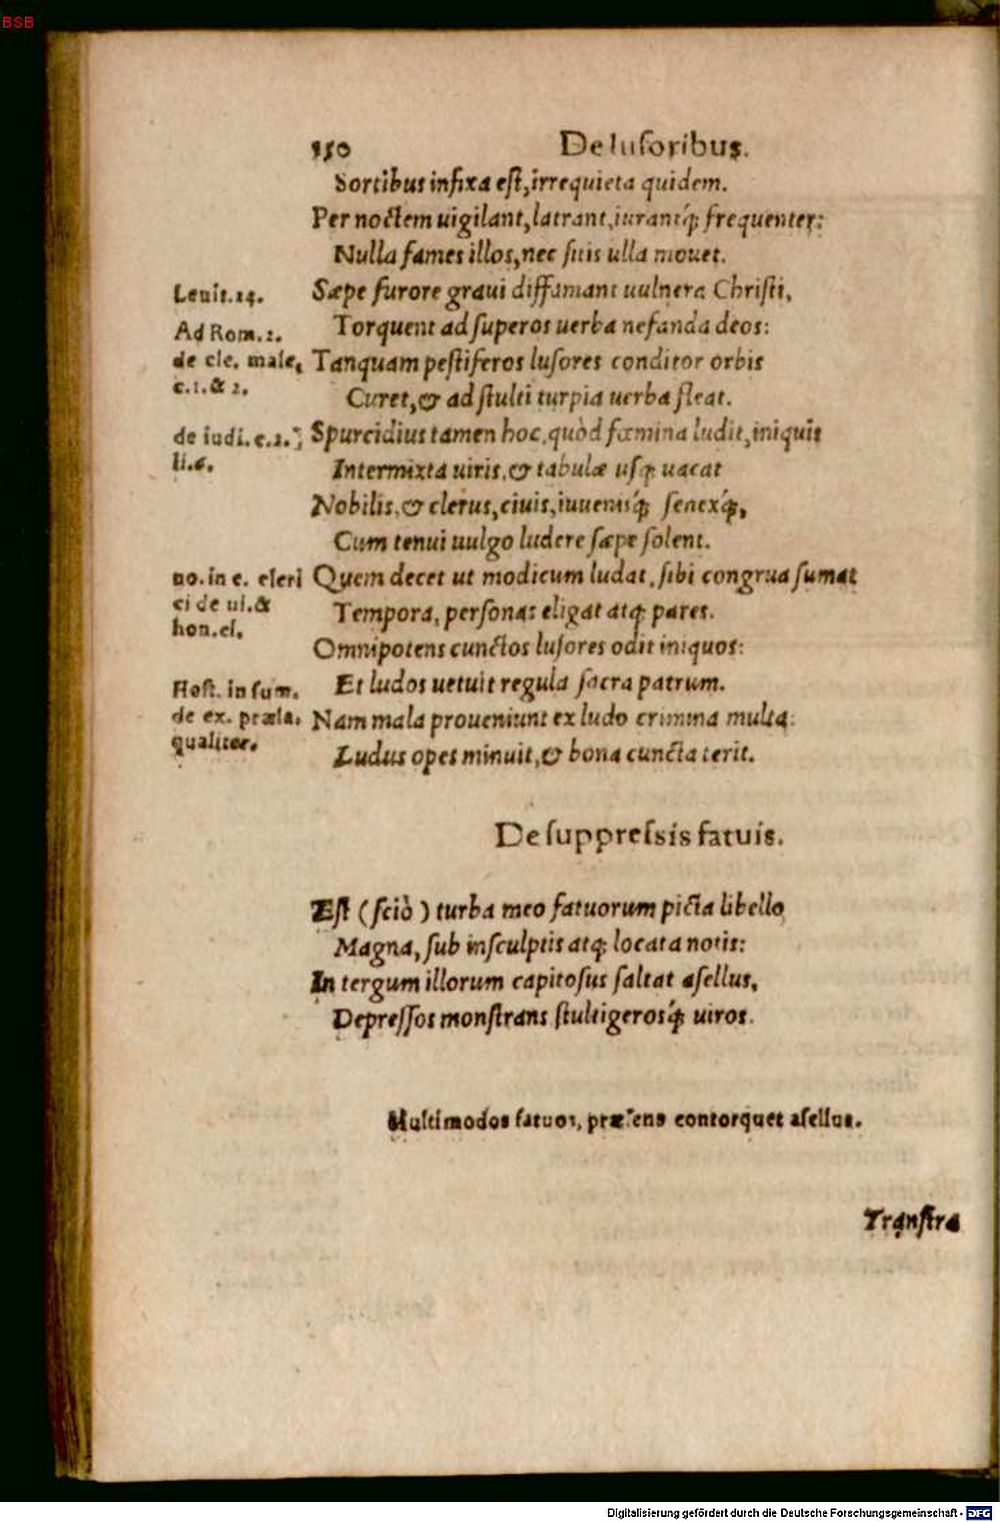 BSB
150 De luſoribus.
Sortibus infixa eſt, irrequieta quidem.
Per noctem uigilant, latrant, iurantq́; frequenter:
Nulla fames illos, nec ſitis ulla mouet.
Leuit. 24.
Sæpe furore graui diffamant uulnera Chriſti,
Ad Rom. 2.
Torquent ad ſuperos uerba nefanda deos:
de cle. male,
Tanquam peſtiferos luſores conditor orbis
c. 1. & 2.
Curet, & ad ſtulti turpia uerba fleat.
de iudi. c. 2.
Spurcidius tamen hoc, quòd fœmina ludit, iniquis
li. 6.
Intermixta uiris, & tabulæ uſq; uacat
Nobilis, & clerus, ciuis, iuuenisq́; ſenexq́;,
Cum tenui uulgo ludere ſæpe ſolent.
no. in c. cleri
Quem decet ut modicum ludat, ſibi congrua ſumat
ci de ui. &
Tempora, perſonas eligat atq; pares.
hon. cl.
Omnipotens cunctos luſores odit iniquos:
Hoſt. in ſum.
Et ludos uetuit regula ſacra patrum.
de ex. præla.
Nam mala proueniunt ex ludo crimina multa:
qualiter.
Ludus opes minuit, & bona cuncta terit.
De ſuppreſsis fatuis.
Eſt (ſciò) turba meo fatuorum picta libello
Magna, ſub inſculptis atq; locata notis:
In tergum illorum capitoſus ſaltat aſellus,
Depreſſos monſtrans ſtultigerosq́; uiros.
Multimodos fatuos, præſens contorquet aſellus.
Tranſtra
Digitalisierung gefördert durch die Deutsche Forschungsgemeinschaft - DFG